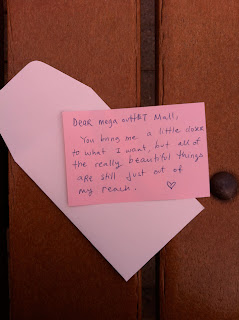 DEAR mega outlET Mall,
You bring me a little closer
to what I want, but all of
the really beautiful things
aRe still just out of
my reach. ♡